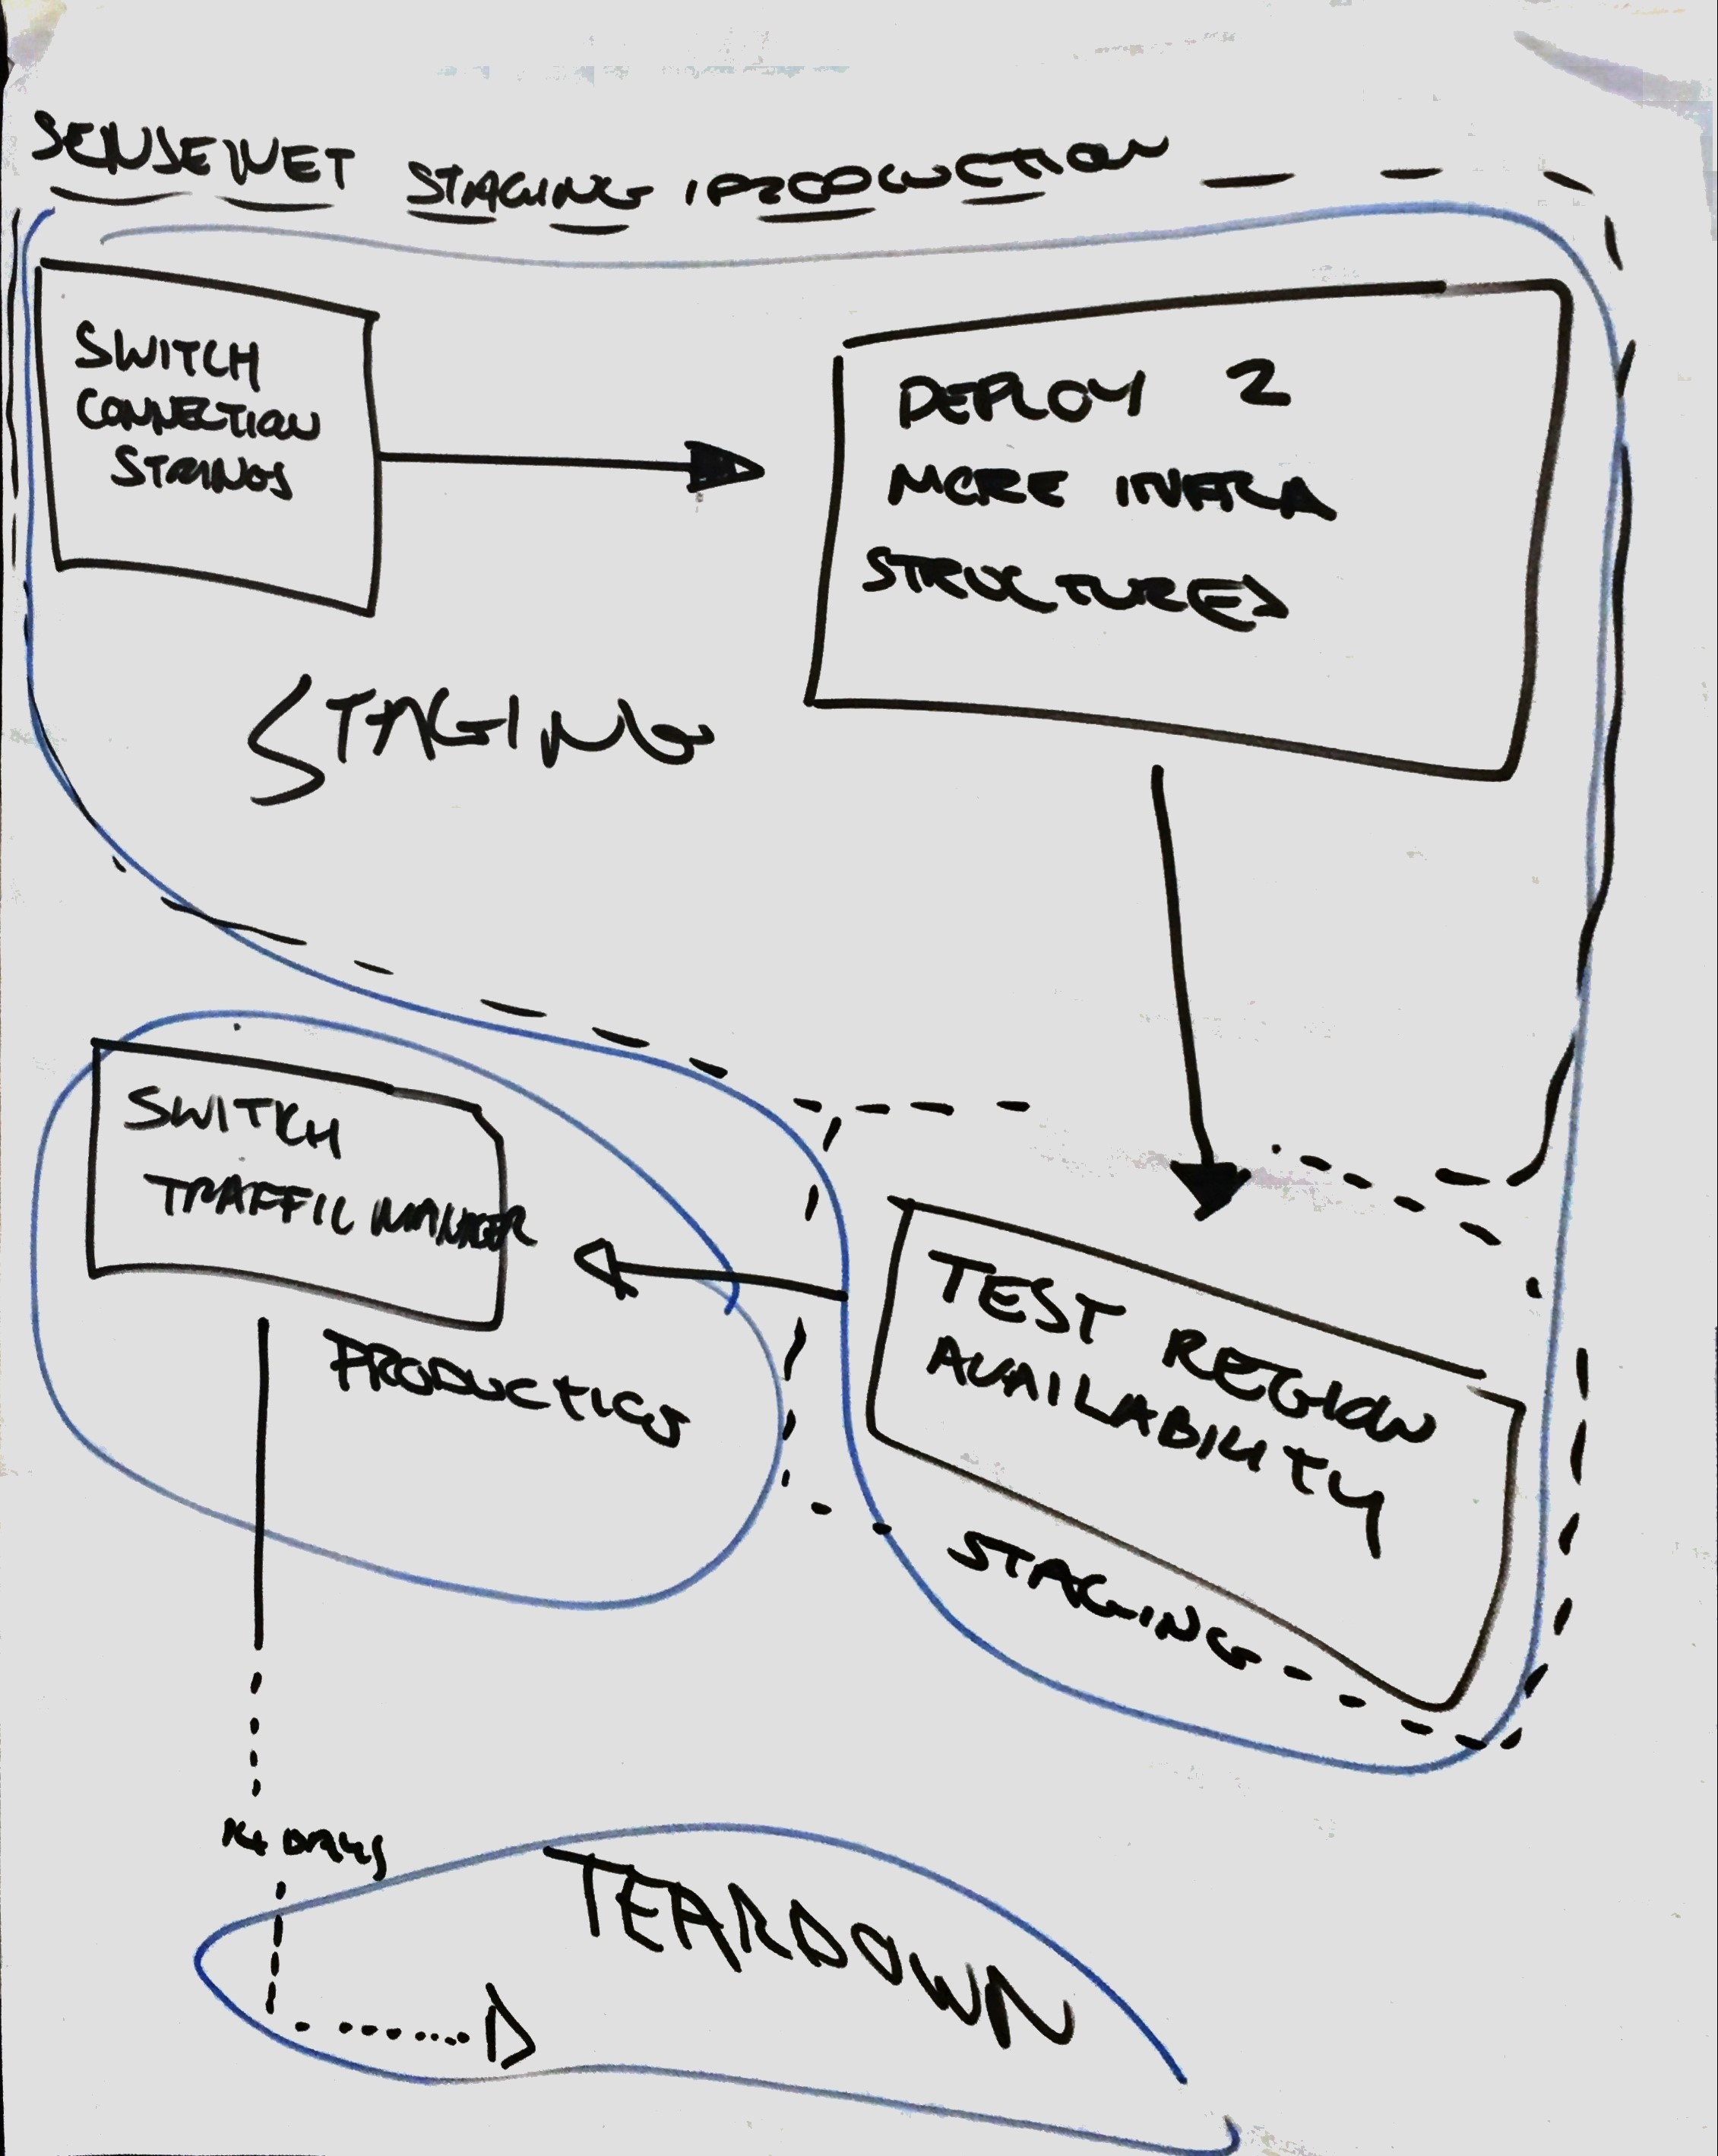 SENSENET STAGING PRODUCTION
SWITCH
CONNECTION
STRINGS
DEPLOY 2
MORE INFRA
STRUCTURES
STAGING
SWITCH
TRAFFIC MANAGER
PRODUCTION
TEST REGION
AVAILABILITY
STAGING
14 DAYS
TEARDOWN